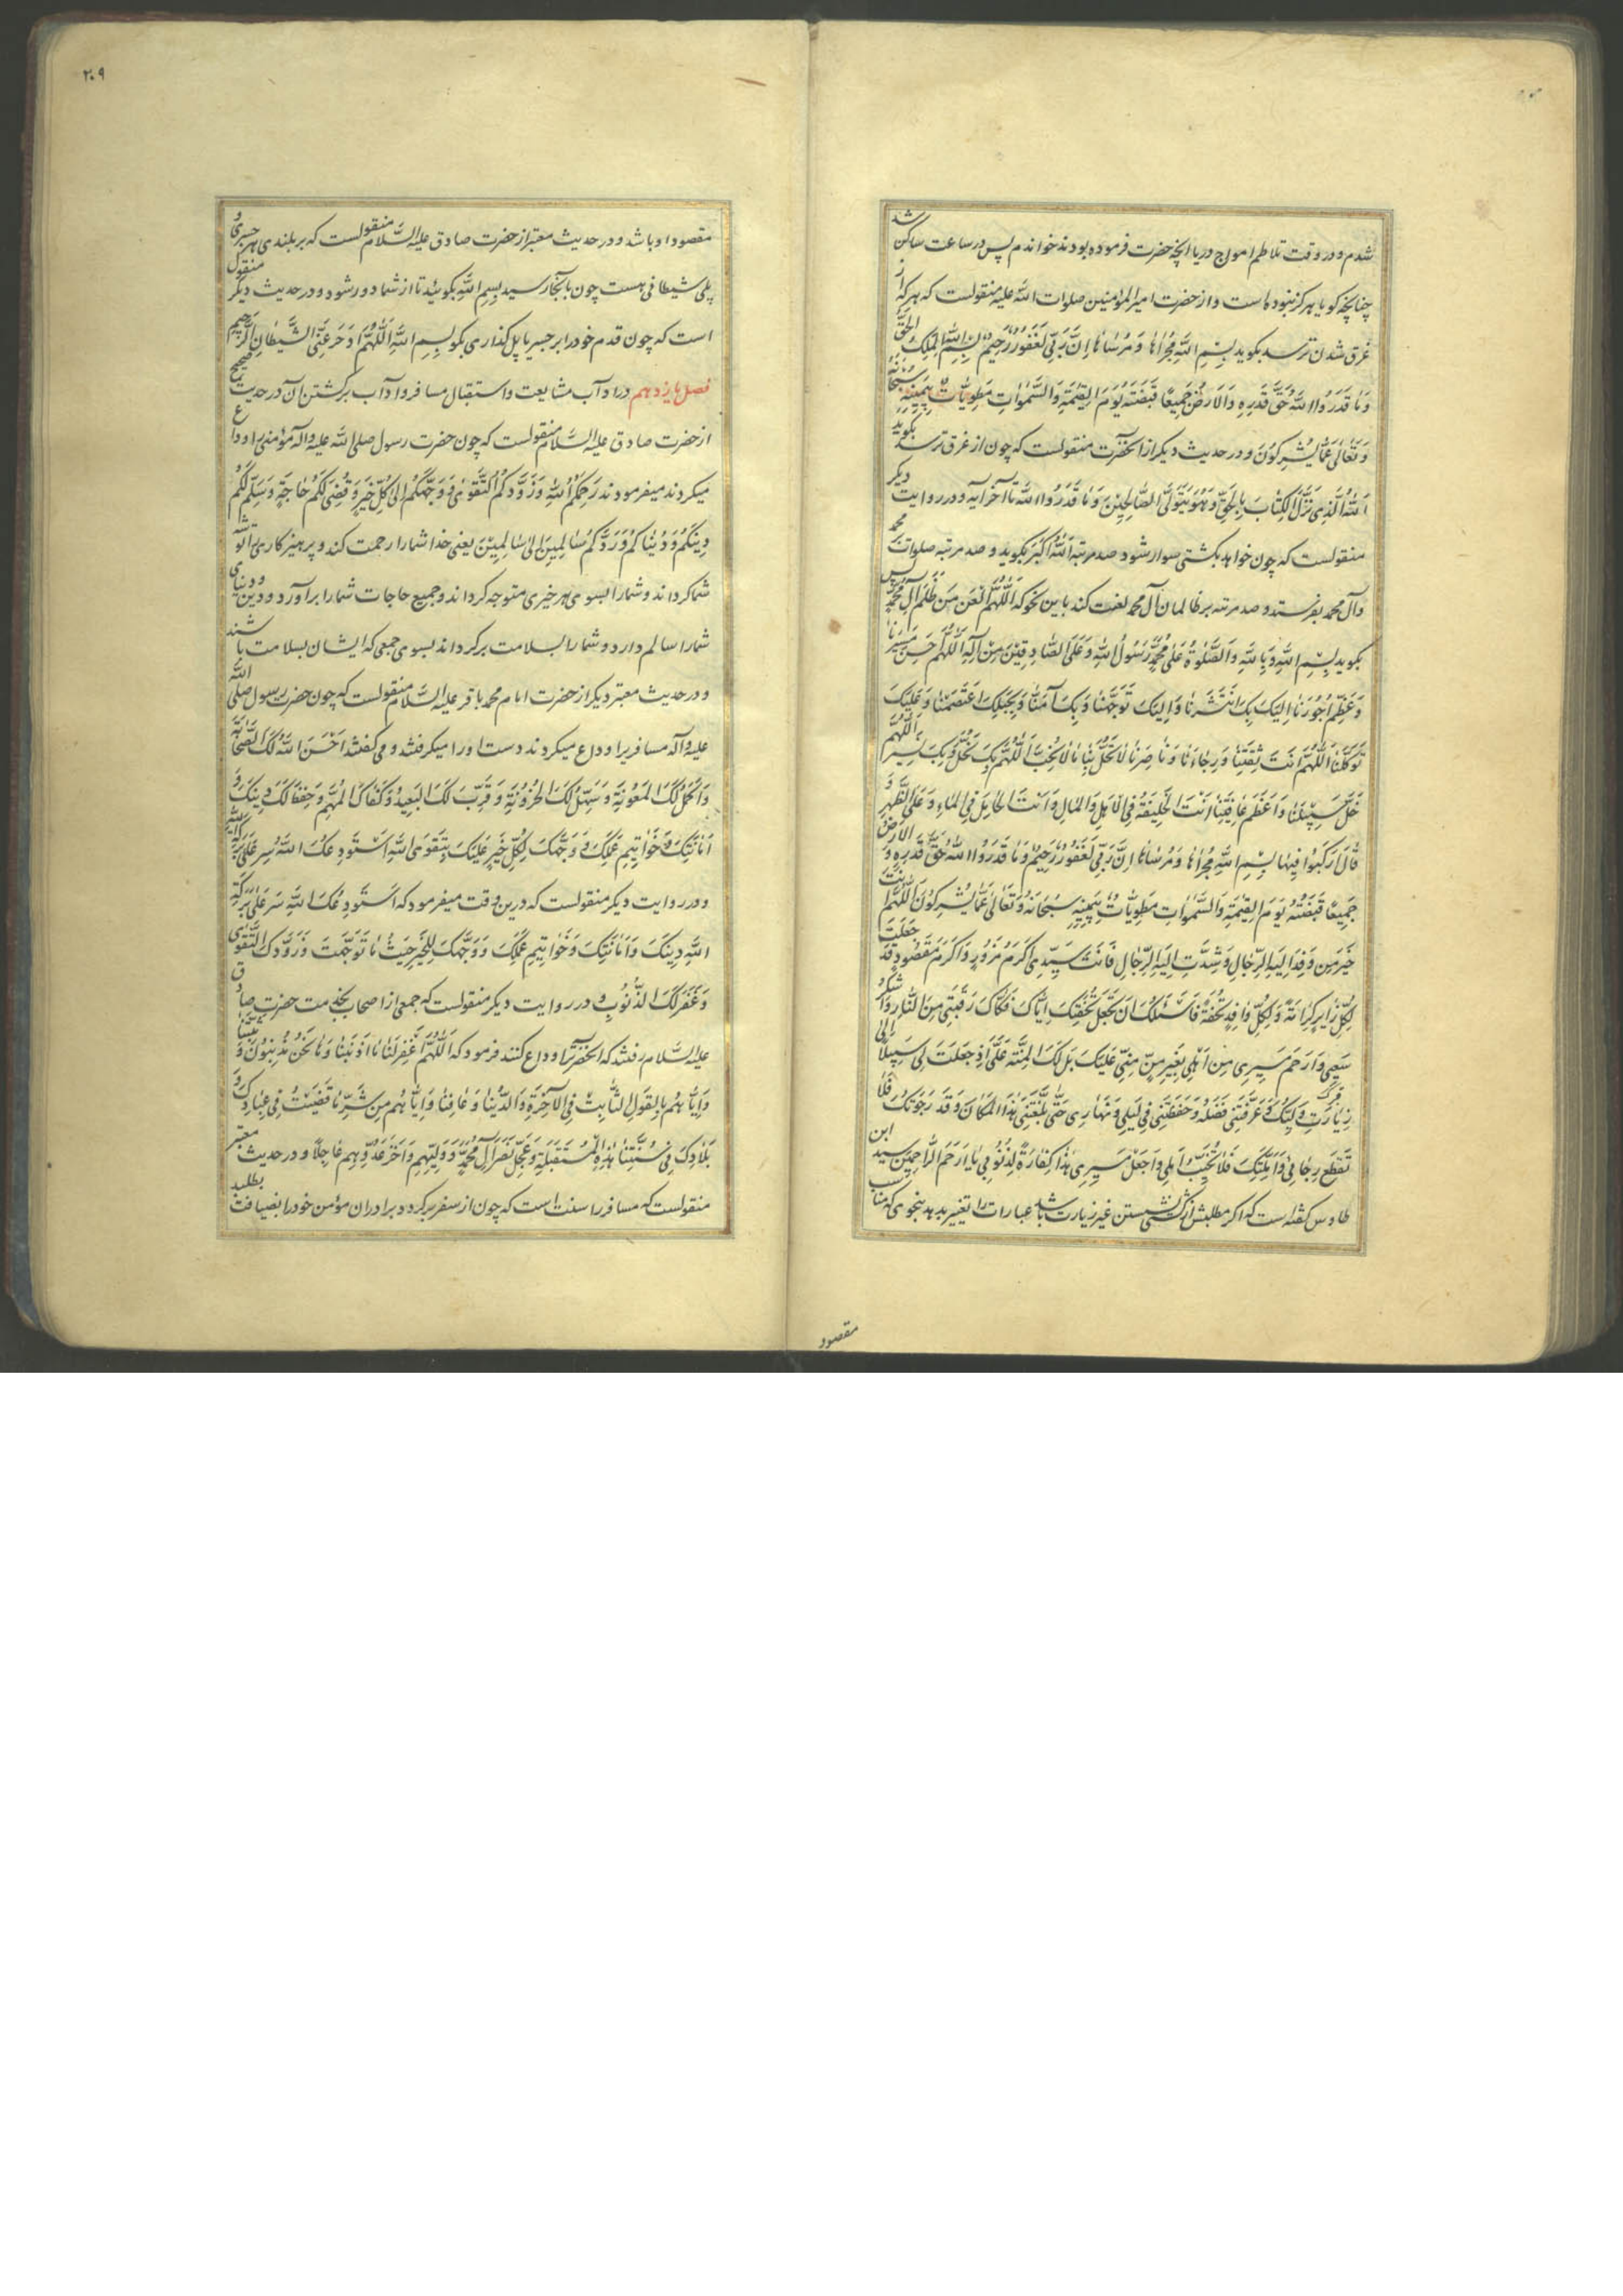 شدم و در وقت تلاطم امواج دریا آنچه حضرت فرموده بودند خواندم پس در ساعت ساکن شد
چنانچه کویا هرکز نبوده است و از حضرت امیرالمؤمنین صلوات الله علیه منقولست که هرکه از
غرق شدن ترسد بکوید بِسْمِ اللهِ مَجْرٰاهٰا وَ مُرْسٰاهٰا اِنَّ رَبّی لَغَفُورٌ رَحیمٌ بِسْمِ اللهِ الْمَلِکِ الْحَقِّ
وَ مٰا قَدَرُوا اللهَ حَقَّ قَدْرِهِ وَ الْاَرْضُ جَمیعًا قَبْضَتُهُ یَوْمَ الْقِیٰمَةِ وَ السَّمٰوٰاتُ مَطْوِیّٰاتٌ بِیَمینِهِ سُبْحٰانَهُ
وَ تَعٰالٰی عَمّٰا یُشْرِکُونَ و در حدیث دیکر از آنحضرت منقولست که چون از غرق ترسد بکوید
اَللهُ الَّذی نَزَّلَ الْکِتٰابَ بِالْحَقِّ وَ هُوَ یَتَوَلَّی الصّٰالِحینَ وَ مٰا قَدَرُوا اللهَ تا آخر آیه و در روایت دیکر
منقولست که چون خواهد بکشتی سوار شود صد مرتبه اَللهُ اَکْبَر بکوید و صد مرتبه صلوات بر محمد
و آل محمد بفرستد و صد مرتبه بر ظالمان آل محمد لعنت کند باین نحو که اَللّٰهُمَّ الْعَنْ مَنْ ظَلَمَ آلَ مُحَمَّدٍ پس
بکوید بِسْمِ اللهِ وَ بِاللهِ وَ الصَّلٰوةُ عَلٰی مُحَمَّدٍ رَسُولِ اللهِ وَ عَلَی الصّٰادِقینَ مِنْ آلِهِ اَللّٰهُمَّ حَسِّنْ مَسیرَنٰا
وَ عَظِّمْ اُجُورَنٰا اِلَیْکَ بِکَ انْتَشَرْنٰا وَ اِلَیْکَ تَوَجَّهْنٰا وَ بِکَ آمَنّٰا وَ بِحَبْلِکَ اعْتَصَمْنٰا وَ عَلَیْکَ
تَوَکَّلْنٰا اَللّٰهُمَّ اَنْتَ ثِقَتُنٰا وَ رَجٰاءُنٰا وَ نٰاصِرُنٰا لٰا تَحُلَّ بِنٰا مٰا لٰا نُحِبُّ اَللّٰهُمَّ بِکَ نَحُلُّ وَ بِکَ نَسیرُ اَللّٰهُمَّ
خَلِّ سَبیلَنٰا وَ اَعْظِمْ عٰافِیَتَنٰا اَنْتَ الْخَلیفَةُ فِی الْاَهْلِ وَ الْمٰالِ وَ اَنْتَ الْحٰامِلُ فِی الْمٰاءِ وَ عَلَی الظَّهْرِ وَ
قٰالَ ارْکَبُوا فیهٰا بِسْمِ اللهِ مَجْرٰاهٰا وَ مُرْسٰاهٰا اِنَّ رَبّی لَغَفُورٌ رَحیمٌ وَ مٰا قَدَرُوا اللهَ حَقَّ قَدْرِهِ وَ الْاَرْضُ
جَمیعًا قَبْضَتُهُ یَوْمَ الْقِیٰمَةِ وَ السَّمٰوٰاتُ مَطْوِیّٰاتٌ بِیَمینِهِ سُبْحٰانَهُ وَ تَعٰالٰی عَمّٰا یُشْرِکُونَ اَللّٰهُمَّ اَنْتَ
خَیْرُ مَنْ وَفَدَ اِلَیْهِ الرِّجٰالُ وَ شُدَّتْ اِلَیْهِ الرِّحٰالُ فَاَنْتَ سَیِّدی اَکْرَمُ مَزُورٍ وَ اَکْرَمُ مَقْصُودٍ وَ قَدْ جَعَلْتَ
لِکُلِّ زٰایِرٍ کَرٰامَةً وَ لِکُلِّ وٰافِدٍ تُحْفَةً فَاَسْئَلُکَ اَنْ تَجْعَلَ تُحْفَتَکَ اِیّٰایَ فَکٰاکَ رَقَبَتی مِنَ النّٰارِ وَ اشْکُرْ
سَعْیی وَ ارْحَمْ مَسیری مِنْ اَهْلی بِغَیْرِ مَنٍّ مِنّی عَلَیْکَ بَلْ لَکَ الْمِنَّةُ عَلَیَّ اِذْ جَعَلْتَ لی سَبیلًا اِلٰی
زِیٰارَتِ وَلِیِّکَ وَ عَرَّفْتَنی فَضْلَهُ وَ حَفِظْتَنی فی لَیْلی وَ نَهٰاری حَتّٰی بَلَّغْتَنی هٰذَا الْمَکٰانَ وَ قَدْ رَجَوْتُکَ فَلٰا
تَقْطَعْ رَجٰائی وَ اَمَّلْتُکَ فَلٰا تُخَیِّبْ اَمَلی وَ اجْعَلْ مَسیری هٰذٰا کَفّٰارَةً لِذُنُوبی یٰا اَرْحَمَ الرّٰاحِمینَ سید ابن
طاوس کفته است که اکر مطلبش از کشتی نشستن غیر زیارت باشد عبارات را تغییر بدهد بنحوی که مناسب
مقصود
۲۰۹
مقصود او باشد و در حدیث معتبر از حضرت صادق علیه السّلام منقولست که بر بلندی هر جسری و
پلی شیطانی هست چون بآنجا رسید بِسْمِ اللهِ بکوئید تا از شما دور شود و در حدیث دیکر منقول
است که چون قدم خود را بر جسر یا پل کذاری بکو بِسْمِ اللهِ اَللّٰهُمَّ ادْحَرْ عَنِّی الشَّیْطٰانَ الرَّجیمَ
فصل یازدهم در آداب مشایعت و استقبال مسافر و آداب برکشتن آن در حدیث صحیح
از حضرت صادق علیه السّلام منقولست که چون حضرت رسول صلی الله علیه و آله مؤمنی را وداع
میکردند میفرمودند رَحِمَکُمُ اللهُ وَ زَوَّدَکُمُ التَّقْوٰی وَ وَجَّهَکُمْ اِلٰی کُلِّ خَیْرٍ وَ قَضٰی لَکُمْ کُلَّ حٰاجَةٍ وَ سَلَّمَ لَکُمْ
دینَکُمْ وَ دُنْیٰاکُمْ وَ رَدَّکُمْ سٰالِمینَ اِلٰی سٰالِمینَ یعنی خدا شما را رحمت کند و پرهیزکاری را توشه
شما کرداند و شما را بسوی هر خیری متوجه کرداند و جمیع حاجات شما را برآورد و دین و دنیای
شما را سالم دارد و شما را بسلامت برکرداند بسوی جمعی که ایشان بسلامت باشند
و در حدیث معتبر دیکر از حضرت امام محمد باقر علیه السّلام منقولست که چون حضرت رسول صلی الله
علیه و آله مسافری را وداع میکردند دست او را میکرفتند و می کفتند اَحْسَنَ اللهُ لَکَ الصَّحٰابَةَ
وَ اَکْمَلَ لَکَ الْمَعُونَةَ وَ سَهَّلَ لَکَ الْحُزُونَةَ وَ قَرَّبَ لَکَ الْبَعیدَ وَ کَفٰاکَ الْمُهِمَّ وَ حَفِظَ لَکَ دینَکَ وَ
اَمٰانَتَکَ وَ خَوٰاتیمَ عَمَلِکَ وَ وَجَّهَکَ لِکُلِّ خَیْرٍ عَلَیْکَ بِتَقْوَی اللهِ اَسْتَوْدِعُکَ اللهَ سِرْ عَلٰی بَرَکَةِ اللهِ
و در روایت دیکر منقولست که درین وقت میفرمود که اَسْتَوْدِعُکَ اللهَ سِرْ عَلٰی بَرَکَةِ
اللهَ دینَکَ وَ اَمٰانَتَکَ وَ خَوٰاتیمَ عَمَلِکَ وَ وَجَّهَکَ لِلْخَیْرِ حَیْثُ مٰا تَوَجَّهْتَ وَ زَوَّدَکَ التَّقْوٰی
وَ غَفَرَ لَکَ الذُّنُوبَ و در روایت دیکر منقولست که جمعی از اصحاب بخدمت حضرت صادق
علیه السّلام رفتند که آنحضرت را وداع کنند فرمود که اَللّٰهُمَّ اغْفِرْ لَنٰا مٰا اَذْنَبْنٰا وَ مٰا نَحْنُ مُذْنِبُونَ وَ ثَبِّتْنٰا
وَ اِیّٰاهُمْ بِالْقَوْلِ الثّٰابِتِ فِی الْآخِرَةِ وَ الدُّنْیٰا وَ عٰافِنٰا وَ اِیّٰاهُمْ مِنْ شَرِّ مٰا قَضَیْتَ فی عِبٰادِکَ وَ
بِلٰادِکَ فی سَنَتِنٰا هٰذِهِ الْمُسْتَقْبَلَةِ وَ عَجِّلْ نَصْرَ آلِ مُحَمَّدٍ وَ وَلِیِّهِمْ وَ اَخْزِ عَدُوَّهُمْ عٰاجِلًا و در حدیث معتبر
منقولست که مسافر را سنت است که چون از سفر برکردد برادران مؤمن خود را بضیافت بطلبد